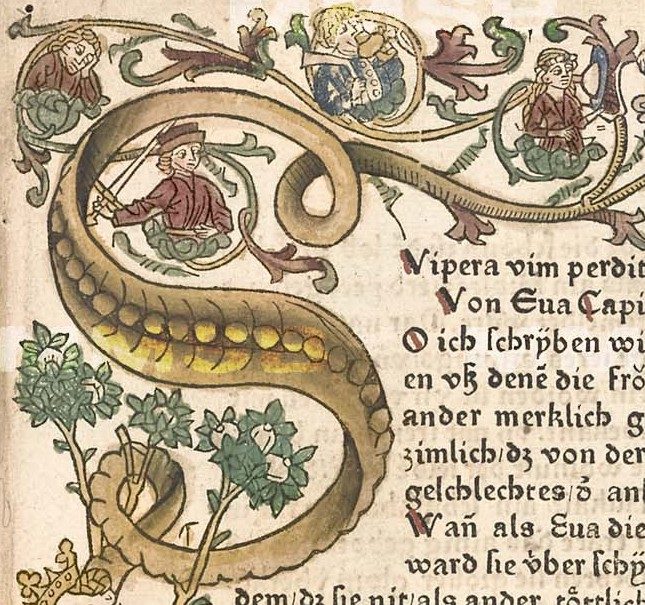 Vipera vim perdit
Von Eua Capi
O ich schrÿben wi
en vß denē die frö
ander merklich g
zimlich/dz von der
geschlechtes/ð anf
Wañ als Eua die
ward sie v̊ber schÿ
dem/dz sie nit/als ander tȯttlich